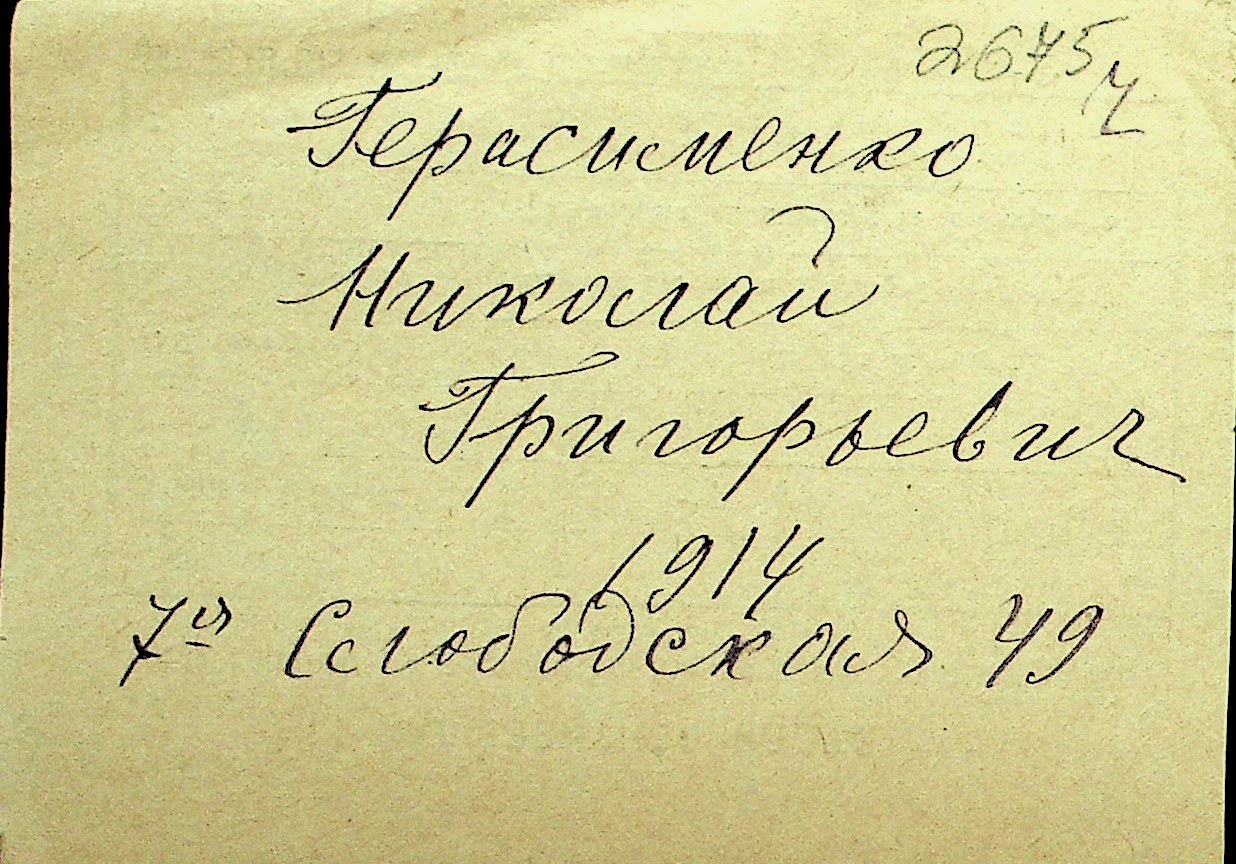 2675
Герасименко
Николай
Григорьевич
1914
7ая Слободская 49